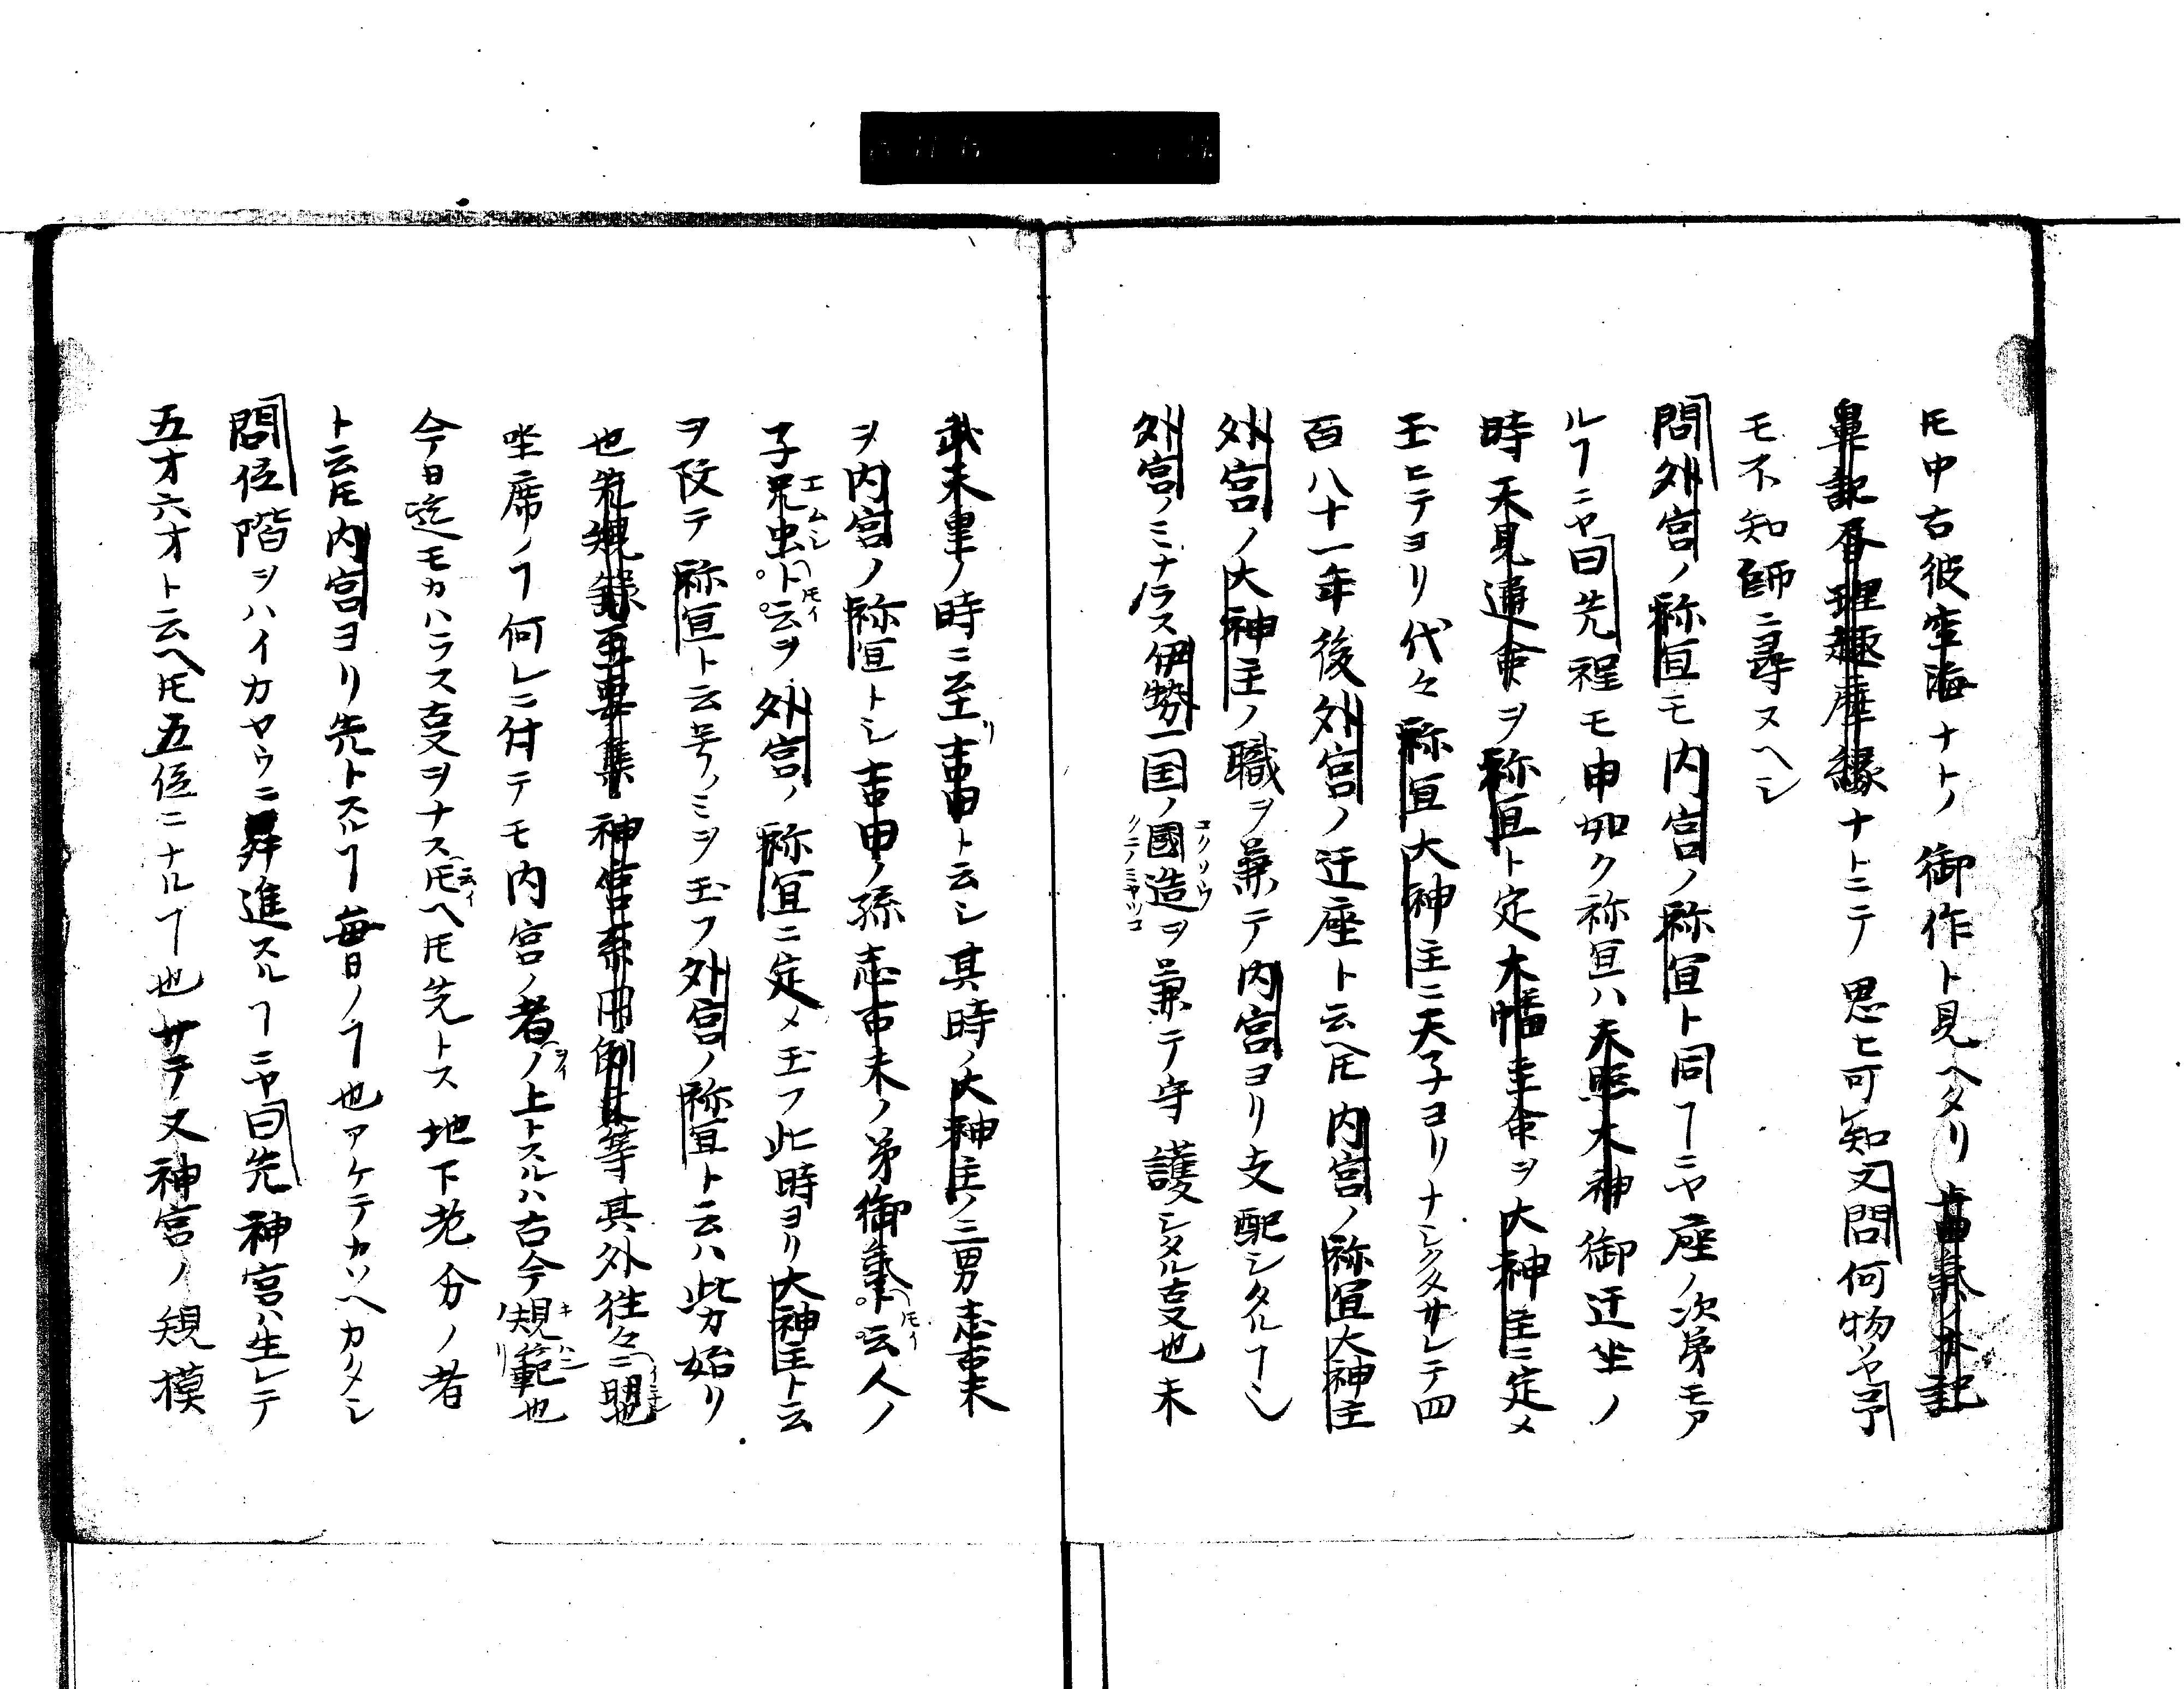 圧中古彼空海ナトノ御作ト見ヘタリ
鼻記香理趣摩縁ナトニテ思ヒ可知又問何物ヤ曰予
モ不知師ニ尋ヌヘシ
問外宮ノ祢宜モ内宮ノ祢宜ト同ヿニヤ座ノ次第モア
ルヿニヤ曰先程モ申如ク祢宜ハ天照大神御迁坐ノ
時天見通命ヲ祢宜ト定大幡主命ヲ大神主ニ定メ
玉ヒテヨリ代々祢宜大神主ニ天子ヨリナシクタサレテ四
百八十一年後外宮ノ迁座ト云ヘ𪜈内宮ノ祢宜大神主
外宮ノ大神主ノ職ヲ兼テ内宮ヨリ支配シタルヿシ
外宮ノミナラス伊勢一国ノ國造ヲ兼テ守護シタル叓也末
武天皇ノ時ニ至リ吉田ト云シ其時ノ大神主ノ三男志古夫
ヲ内宮ノ祢宜トシ吉田ノ孫志古夫ノ弟御氣ト云人ノ
子兄虫ト云ヲ外宮ノ祢宜ニ定メ玉フ此時ヨリ大神主ト云
ヲ改テ祢宜ト云号ノミヲ玉フ外宮ノ祢宜ト云ハ此カ始リ
也 神宮 等其外往々ニ明也
坐席ノヿ何レニ付テモ内宮ノ者ノ上トスルハ古今ノ規範也
今日迄モカハラス叓ヲナス𪜈ヘ𪜈先トス地下老分ノ者
ト云𪜈内宮ヨリ先トスルヿ毎日ノヿ也アケテカソヘカタシ
問位階ヲハイカヤウニ昇進スルヿニヤ曰先神宮ハ生レテ
五才六才ト云ヘ𪜈五位ニナルヿ也サテ又神宮ノ規模